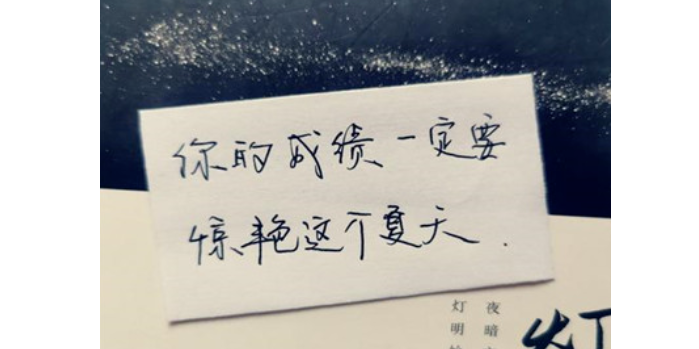 你的成绩一定要
惊艳这个夏天.
夜暗
灯明
灯